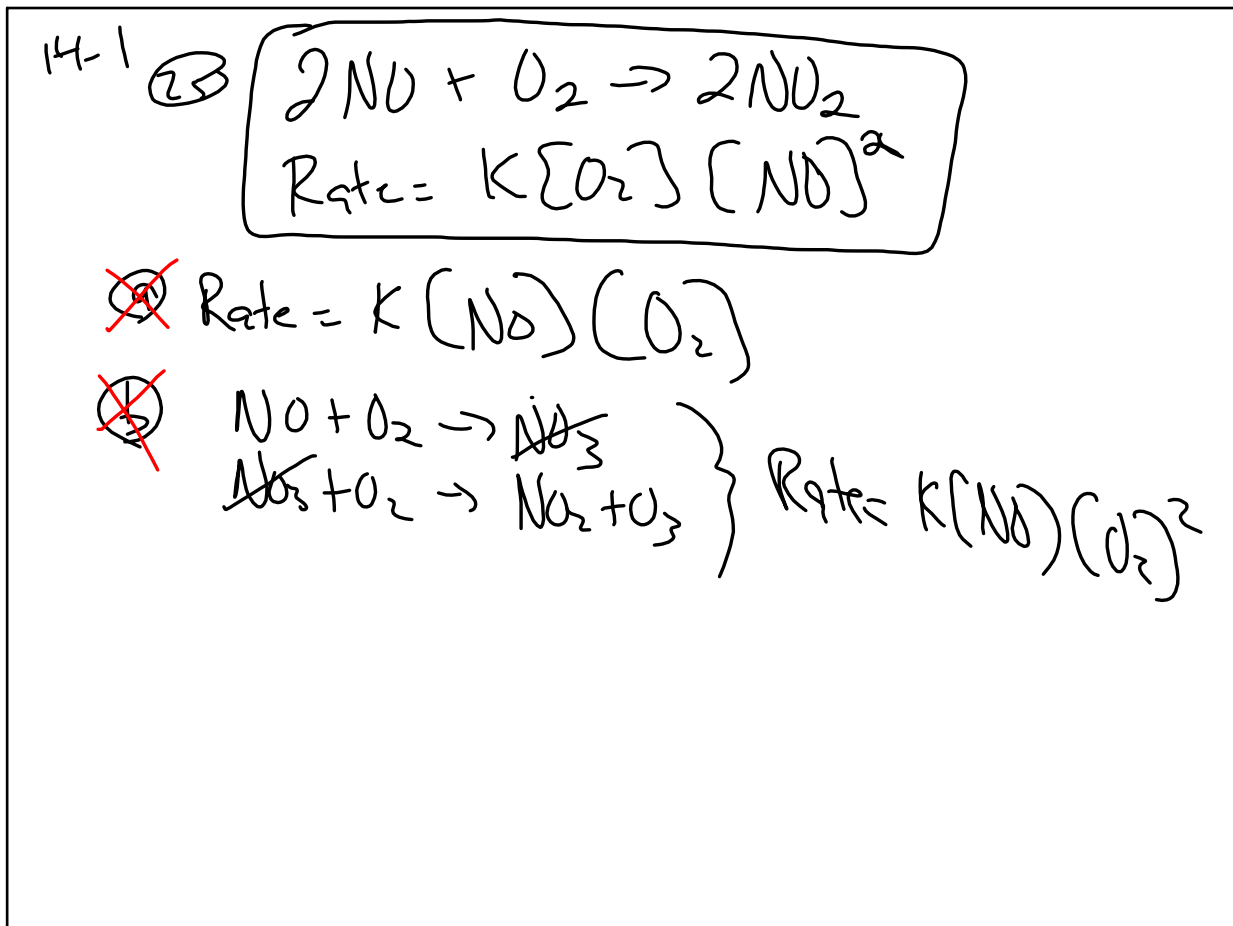 14-1 25 2NO + O₂ → 2NO₂
Rate = K[O₂] [NO]²
a Rate = K (NO) (O₂)
b NO + O₂ → NO₃
NO₃ + O₂ → NO₂ + O₃ } Rate = K(NO) (O₂)²